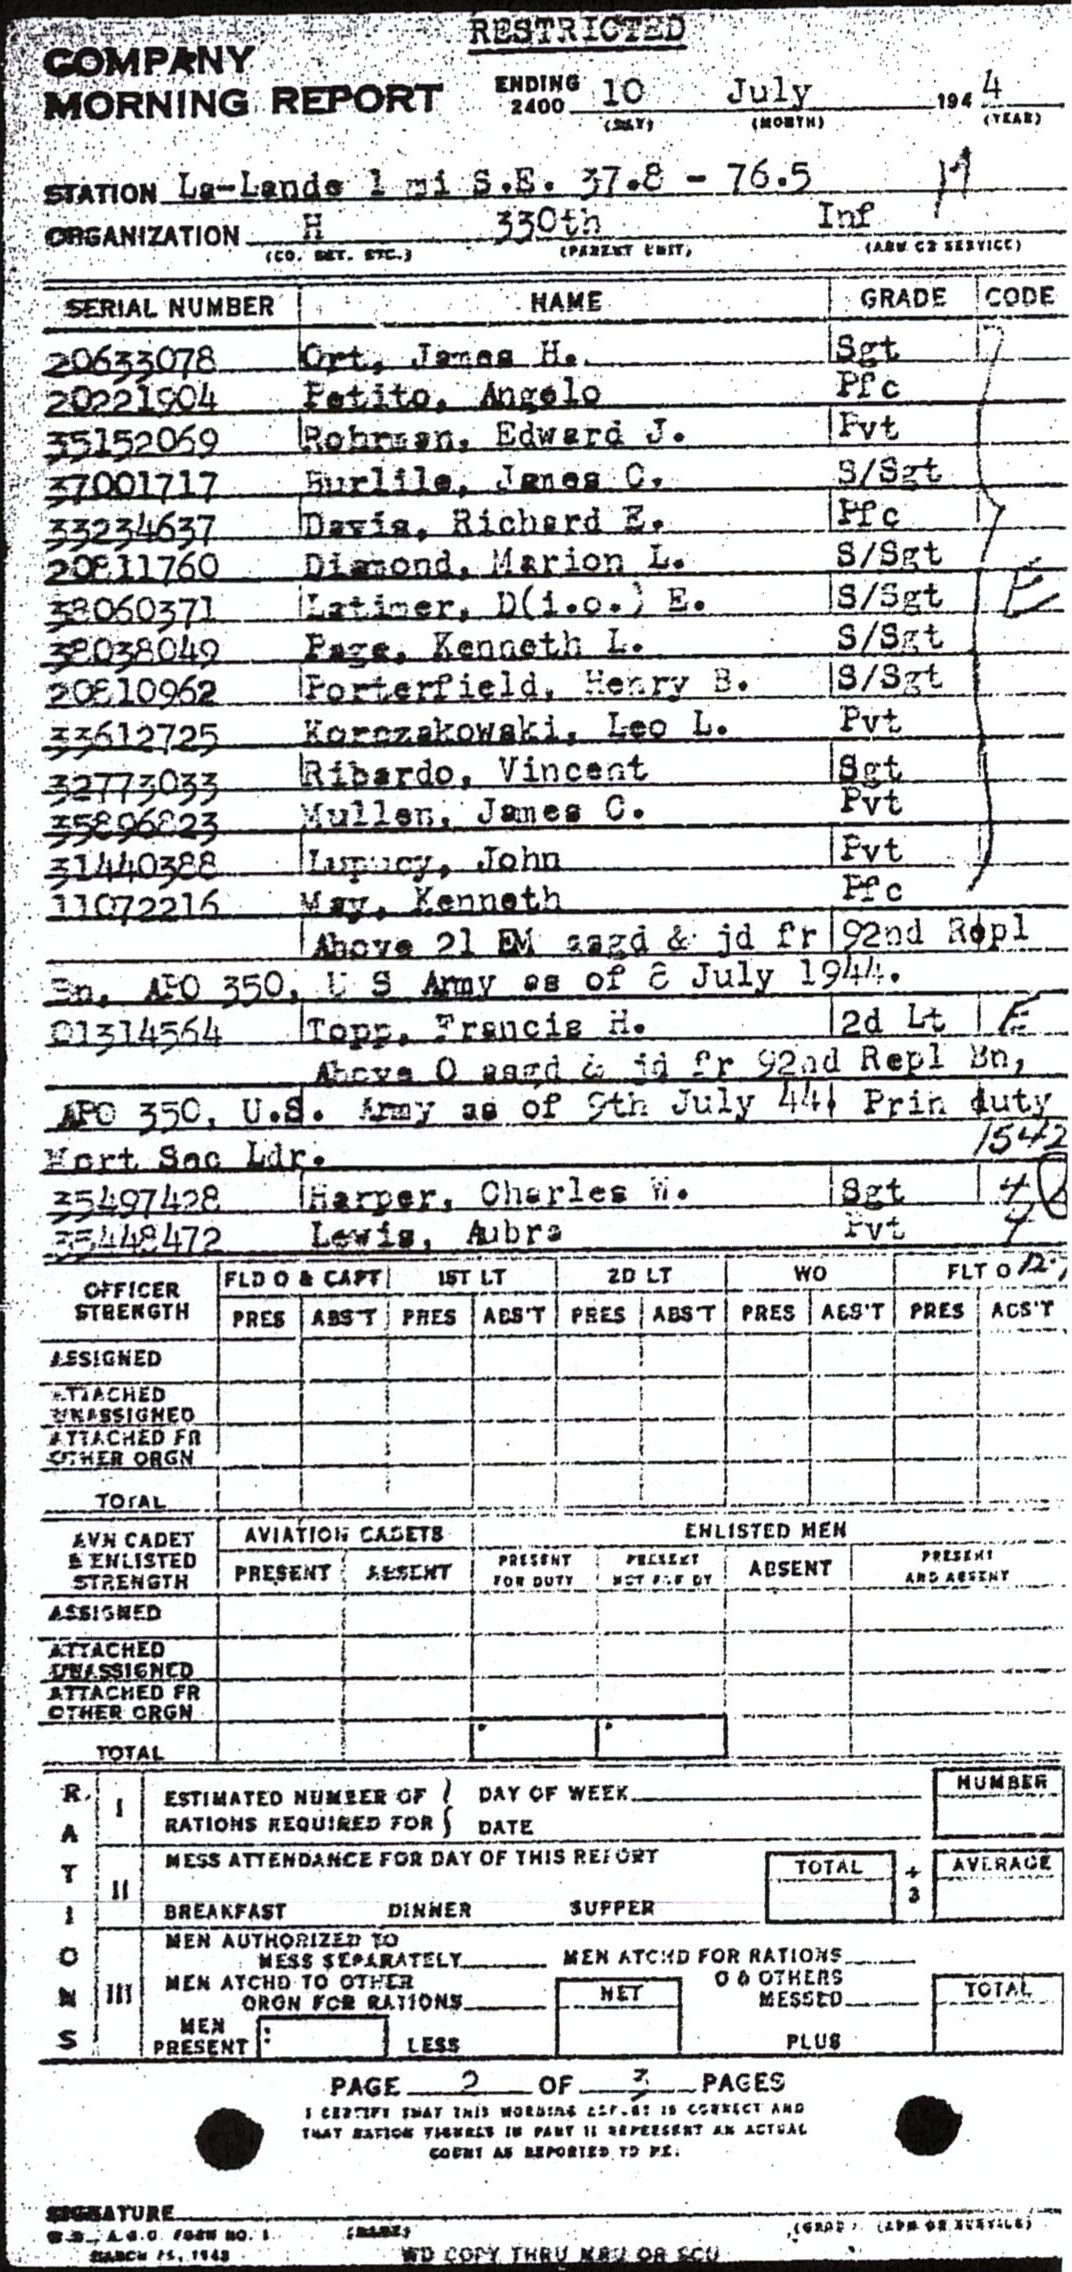 RESTRICTED
COMPANY
MORNING REPORT ENDING 2400 10 July 1944
(DAY) (MONTH) (YEAR)
STATION La-Lande 1 mi S.E. 37.8 - 76.5
ORGANIZATION H 330th Inf
(CO. DET. ETC.) (PARENT UNIT) (ARM OR SERVICE)
SERIAL NUMBER NAME GRADE CODE
20633078 Ort, James H. Sgt
20221904 Petito, Angelo Pfc
35152069 Rohrman, Edward J. Pvt
37001717 Burlile, James C. S/Sgt
33234637 Davis, Richard E. Pfc
20811760 Diamond, Marion L. S/Sgt
38060371 Latimer, D(i.o.) E. S/Sgt E
38038049 Page, Kenneth L. S/Sgt
20810962 Porterfield, Henry B. S/Sgt
33612725 Korczakowski, Leo L. Pvt
32773033 Ribardo, Vincent Sgt
35896823 Mullen, James C. Pvt
31440388 Lupucy, John Pvt
11072216 May, Kenneth Pfc
Above 21 EM asgd & jd fr 92nd Repl
Bn, APO 350, U S Army as of 8 July 1944.
01314564 Topp, Francis H. 2d Lt E
Above O asgd & jd fr 92nd Repl Bn,
APO 350, U.S. Army as of 9th July 44. Prin duty
1542
Mort Sec Ldr.
35497428 Harper, Charles W. Sgt 4
35448472 Lewis, Aubra Pvt 4
OFFICER STRENGTH FLD O & CAPT 1ST LT 2D LT WO FLT O
PRES ABS'T PRES ABS'T PRES ABS'T PRES ABS'T PRES ABS'T
ASSIGNED
ATTACHED UNASSIGNED
ATTACHED FR OTHER ORGN
TOTAL
AVN CADET & ENLISTED STRENGTH AVIATION CADETS ENLISTED MEN
PRESENT ABSENT PRESENT FOR DUTY PRESENT NOT FOR DY ABSENT PRESENT AND ABSENT
ASSIGNED
ATTACHED UNASSIGNED
ATTACHED FR OTHER ORGN
TOTAL
RATIONS
I ESTIMATED NUMBER OF RATIONS REQUIRED FOR DAY OF WEEK DATE NUMBER
II MESS ATTENDANCE FOR DAY OF THIS REPORT TOTAL ÷ 3 AVERAGE
BREAKFAST DINNER SUPPER
III MEN AUTHORIZED TO MESS SEPARATELY MEN ATCHD FOR RATIONS
MEN ATCHD TO OTHER ORGN FOR RATIONS NET O & OTHERS MESSED TOTAL
MEN PRESENT LESS PLUS
PAGE 2 OF 3 PAGES
I CERTIFY THAT THIS MORNING REPORT IS CORRECT AND
THAT RATION FIGURES IN PART II REPRESENT AN ACTUAL
COUNT AS REPORTED TO ME.
SIGNATURE
W.D., A.G.O. FORM NO. 1 (NAME) (GRADE) (ARM OR SERVICE)
MARCH 15, 1943
WD COPY THRU MRU OR SCU